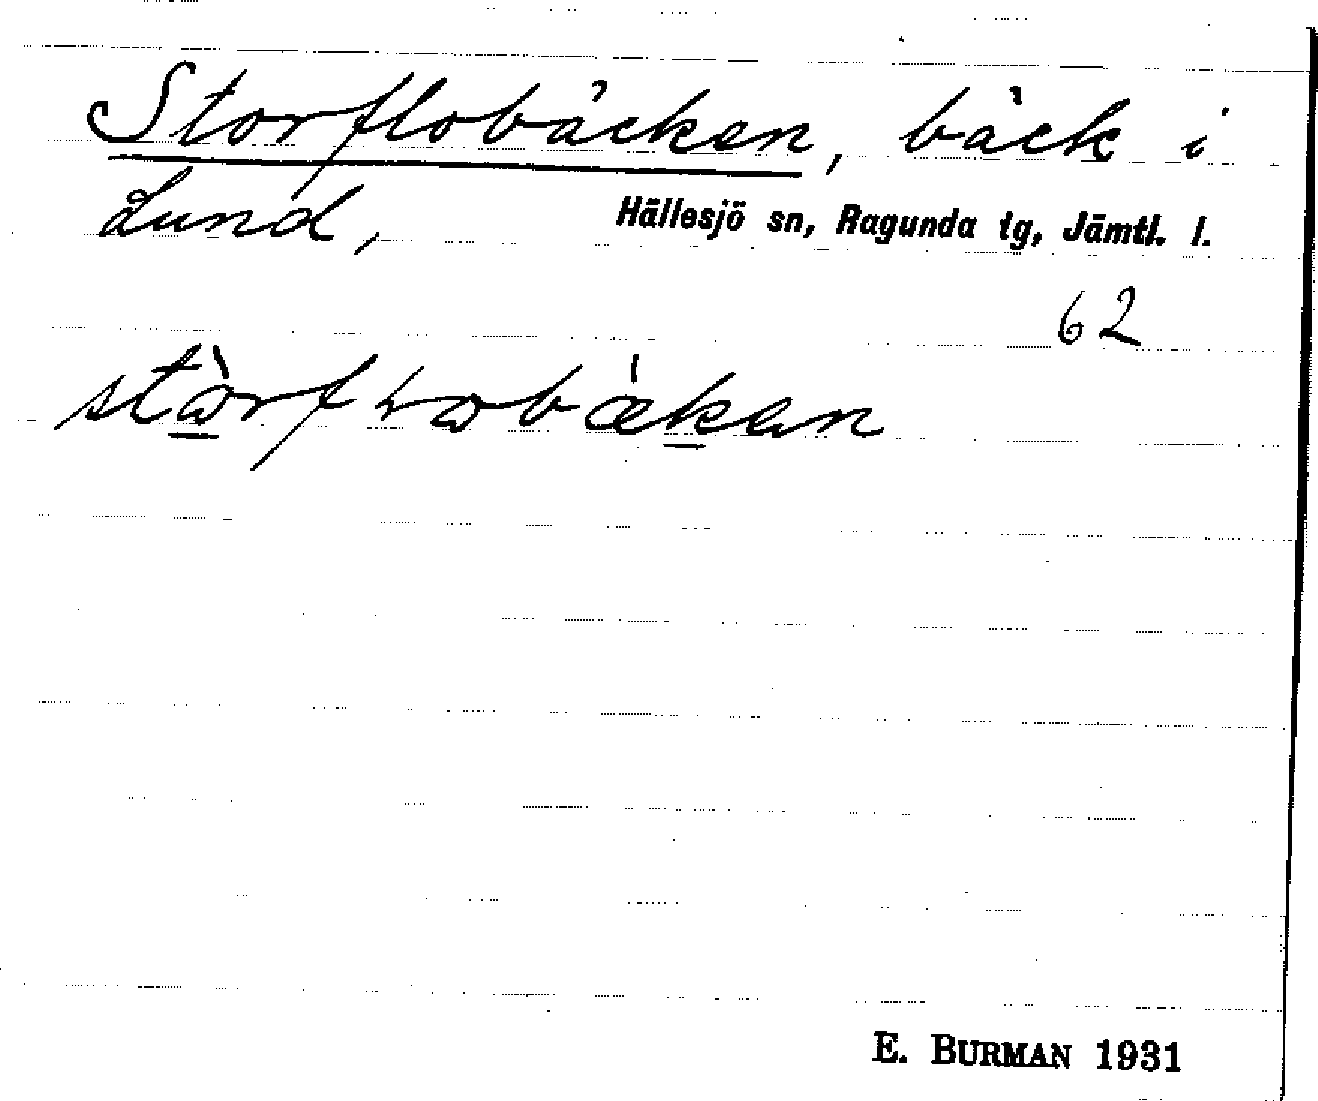 Storflobäcken, bäck i
Lund, Hällesjö sn, Ragunda tg, Jämtl. l.
62
E. BURMAN 1931